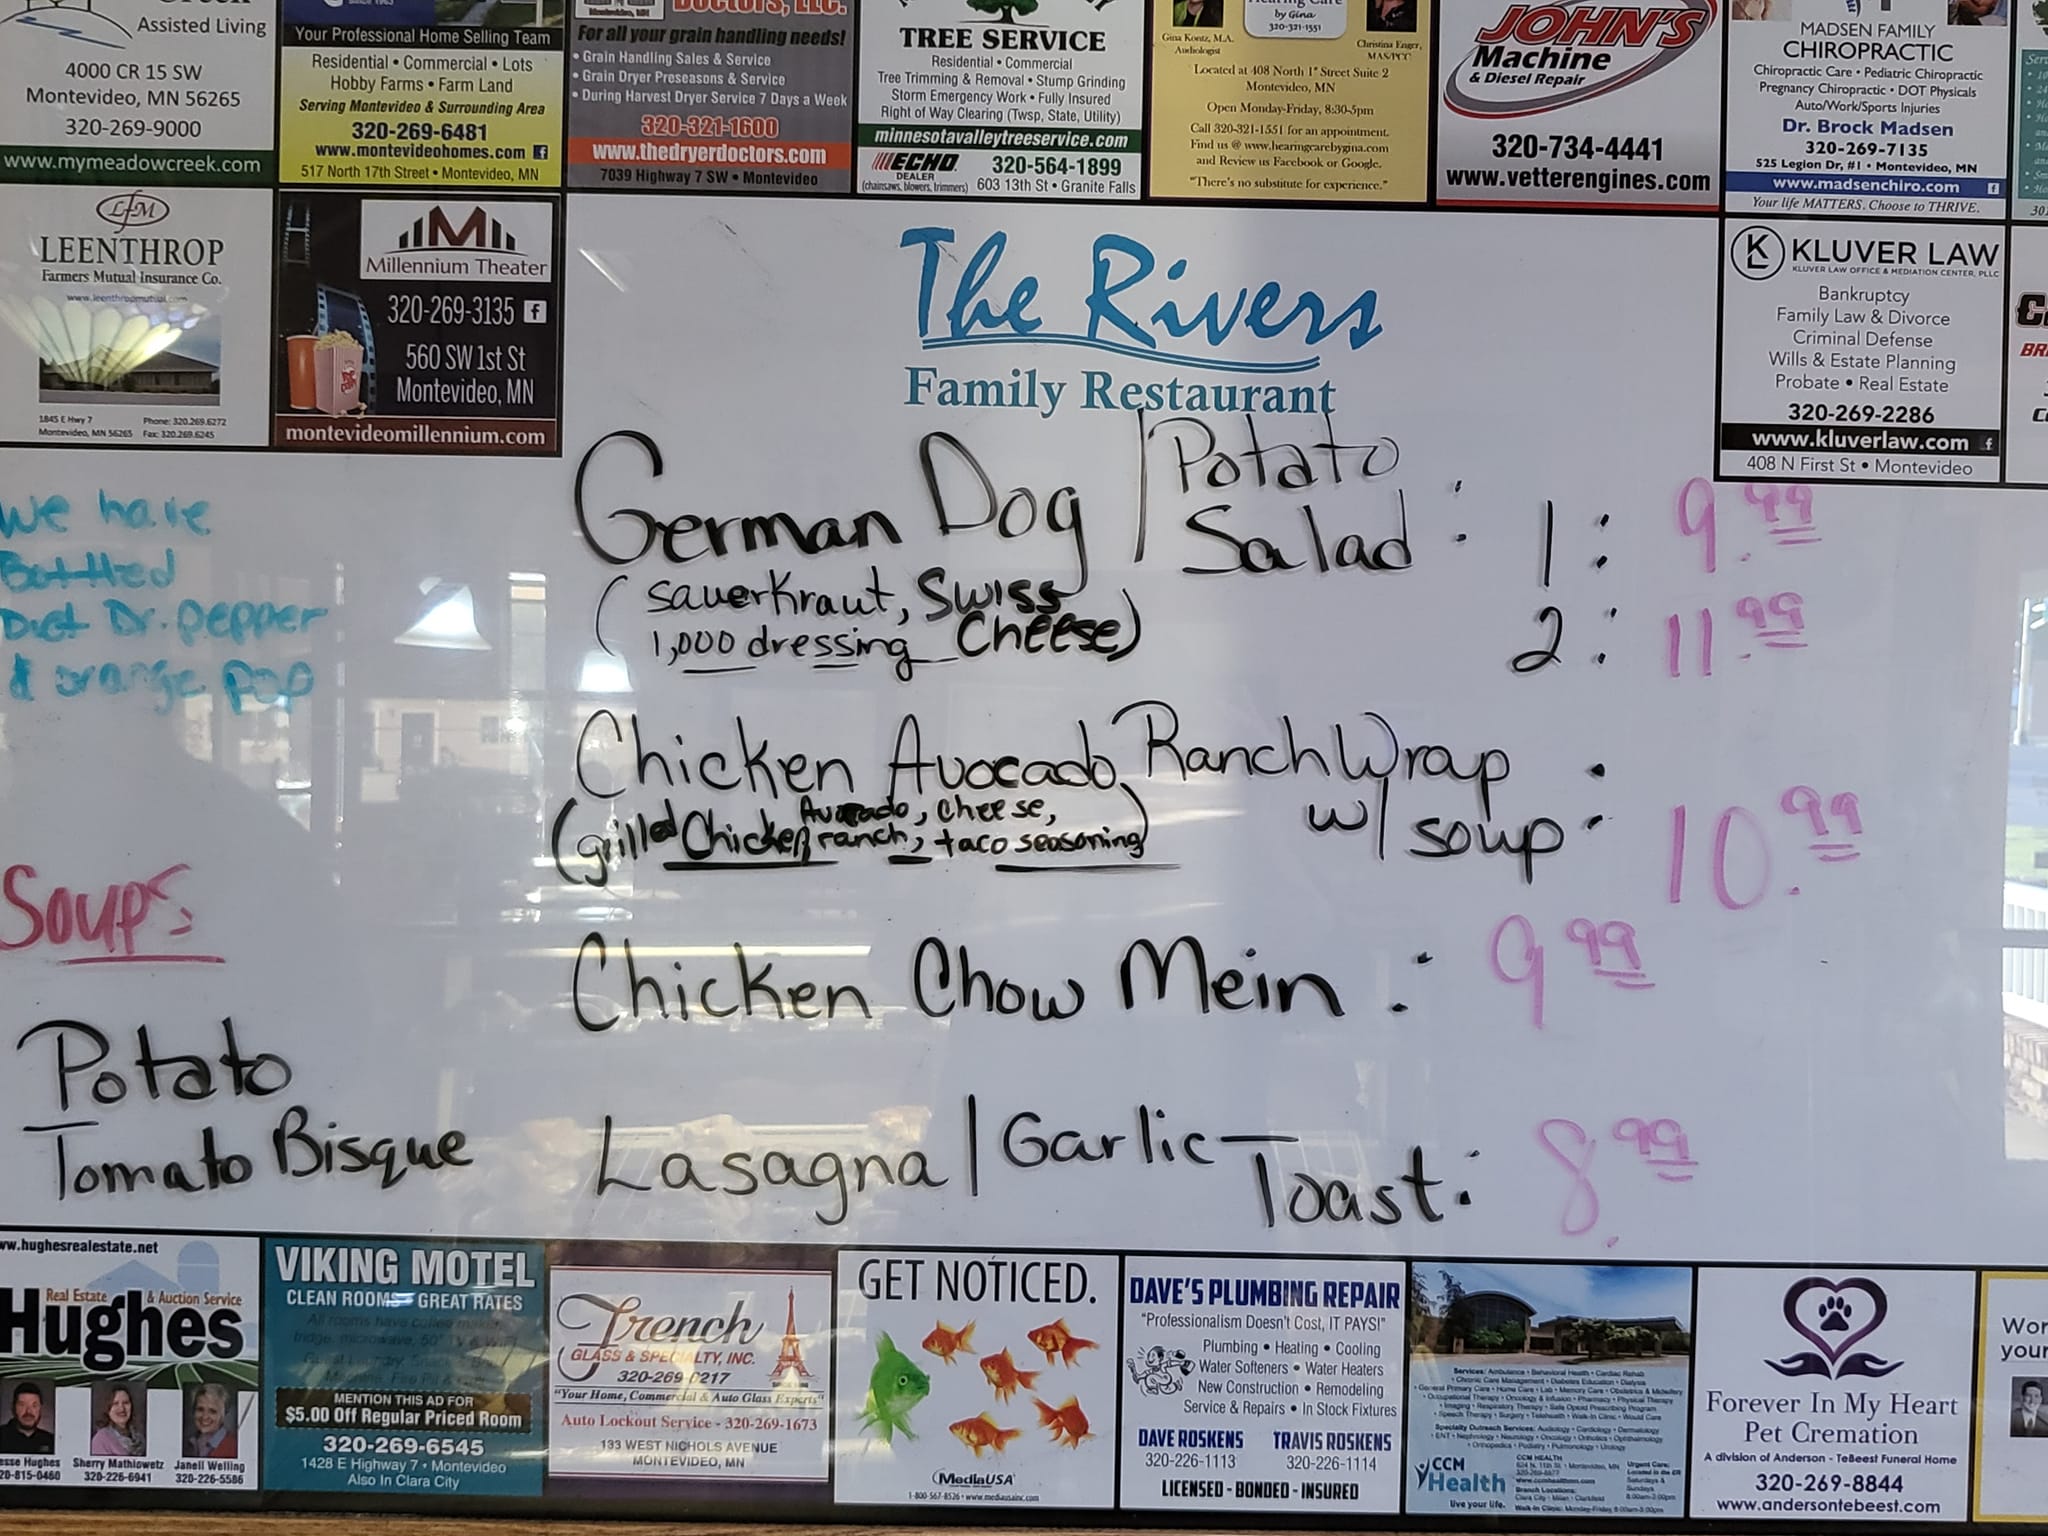 Assisted Living
4000 CR 15 SW
Montevideo, MN 56265
320-269-9000
www.mymeadowcreek.com
Your Professional Home Selling Team
Residential • Commercial • Lots
Hobby Farms • Farm Land
Serving Montevideo & Surrounding Area
320-269-6481
www.montevideohomes.com f
517 North 17th Street • Montevideo, MN
Doctors, LLC.
For all your grain handling needs!
• Grain Handling Sales & Service
• Grain Dryer Preseasons & Service
• During Harvest Dryer Service 7 Days a Week
320-321-1600
www.thedryerdoctors.com
7039 Highway 7 SW • Montevideo
TREE SERVICE
Residential • Commercial
Tree Trimming & Removal • Stump Grinding
Storm Emergency Work • Fully Insured
Right of Way Clearing (Twsp, State, Utility)
minnesotavalleytreeservice.com
ECHO 320-564-1899
DEALER
(chainsaws, blowers, trimmers) 603 13th St • Granite Falls
Hearing Care
by Gina
320-321-1551
Gina Kontz, M.A.
Audiologist
Christina Enger,
MAS/PCC
Located at 408 North 1st Street Suite 2
Montevideo, MN
Open Monday-Friday, 8:30-5pm
Call 320-321-1551 for an appointment.
Find us @ www.hearingcarebygina.com
and Review us Facebook or Google.
"There's no substitute for experience."
JOHN'S
Machine
& Diesel Repair
320-734-4441
www.vetterengines.com
MADSEN FAMILY
CHIROPRACTIC
Chiropractic Care • Pediatric Chiropractic
Pregnancy Chiropractic • DOT Physicals
Auto/Work/Sports Injuries
Dr. Brock Madsen
320-269-7135
525 Legion Dr, #1 • Montevideo, MN
www.madsenchiro.com f
Your life MATTERS. Choose to THRIVE.
LfM
LEENTHROP
Farmers Mutual Insurance Co.
www.leenthropmutual.com
1845 E Hwy 7 Phone: 320.269.6272
Montevideo, MN 56265 Fax: 320.269.6245
M
Millennium Theater
320-269-3135 f
560 SW 1st St
Montevideo, MN
montevideomillennium.com
The Rivers
Family Restaurant
KL KLUVER LAW
KLUVER LAW OFFICE & MEDIATION CENTER, PLLC
Bankruptcy
Family Law & Divorce
Criminal Defense
Wills & Estate Planning
Probate • Real Estate
320-269-2286
www.kluverlaw.com f
408 N First St • Montevideo
We have
Bottled
Diet Dr. Pepper
& orange pop
German Dog / Potato
Salad : 1: 9.99
(sauerkraut, Swiss
1,000 dressing Cheese)
2: 11.99
Chicken Avocado Ranch Wrap
w/ soup : 10.99
(grilled Chicken, Avocado, cheese,
ranch, taco seasoning)
Chicken Chow Mein : 9.99
Lasagna / Garlic
Toast : 8.99
Soups:
Potato
Tomato Bisque
www.hughesrealestate.net
Real Estate & Auction Service
Hughes
Jesse Hughes Sherry Mathiowetz Janell Welling
320-815-0460 320-226-6941 320-226-5586
VIKING MOTEL
CLEAN ROOMS • GREAT RATES
MENTION THIS AD FOR
$5.00 Off Regular Priced Room
320-269-6545
1428 E Highway 7 • Montevideo
Also In Clara City
French
GLASS & SPECIALTY, INC.
320-269-0217
"Your Home, Commercial & Auto Glass Experts"
Auto Lockout Service - 320-269-1673
133 WEST NICHOLS AVENUE
MONTEVIDEO, MN
GET NOTICED.
MediaUSA
1-800-567-8526 • www.mediausainc.com
DAVE'S PLUMBING REPAIR
"Professionalism Doesn't Cost, IT PAYS!"
Plumbing • Heating • Cooling
Water Softeners • Water Heaters
New Construction • Remodeling
Service & Repairs • In Stock Fixtures
DAVE ROSKENS TRAVIS ROSKENS
320-226-1113 320-226-1114
LICENSED - BONDED - INSURED
CCM
Health
live your life.
Forever In My Heart
Pet Cremation
A division of Anderson - TeBeest Funeral Home
320-269-8844
www.andersontebeest.com